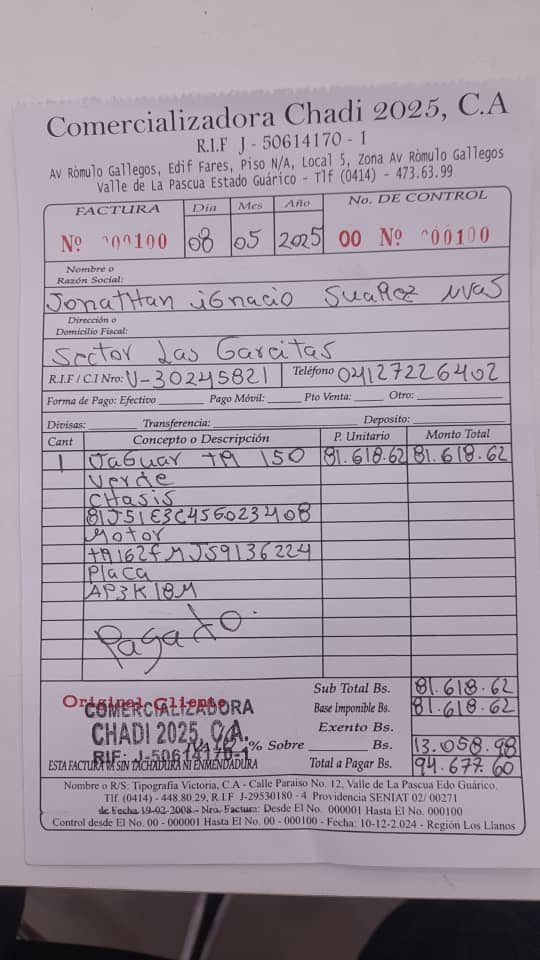 Comercializadora Chadi 2025, C.A
R.I.F J - 50614170 - 1
Av Ròmulo Gallegos, Edif Fares, Piso N/A, Local 5, Zona Av Ròmulo Gallegos
Valle de La Pascua Estado Guárico - Tlf (0414) - 473.63.99
FACTURA Día Mes Año No. DE CONTROL
Nº 000100 08 05 2025 00 Nº 000100
Nombre o
Razón Social:
Jonathan ignacio Suarez
Dirección o
Domicilio Fiscal:
Sector Las Garcitas
R.I.F / C.I Nro: V-30245821 Teléfono 04127226402
Forma de Pago: Efectivo Pago Móvil: Pto Venta: Otro:
Divisas: Transferencia: Deposito:
Cant Concepto o Descripción P. Unitario Monto Total
1 Jaguar TR 150 81.618.62 81.618.62
Verde
CHasis
81J51E3C45G023408
Motor
TR162FMJ59136224
Placa
AP3K18M
Pagado.
Original Cliente
COMERCIALIZADORA
CHADI 2025, C.A.
RIF: J-50614170-1
Sub Total Bs. 81.618.62
Base Imponible Bs. 81.618.62
Exento Bs.
IVA % Sobre Bs. 13.058.98
ESTA FACTURA VA SIN TACHADURA NI ENMENDADURA
Total a Pagar Bs. 94.677.60
Nombre o R/S: Tipografia Victoria, C.A - Calle Paraiso No. 12, Valle de La Pascua Edo Guárico.
Tlf. (0414) - 448.80.29, R.I.F J-29530180 - 4 Providencia SENIAT 02/ 00271
de Fecha 19-02-2008 - Nro. Factura: Desde El No. 000001 Hasta El No. 000100
Control desde El No. 00 - 000001 Hasta El No. 00 - 000100 - Fecha: 10-12-2.024 - Región Los Llanos